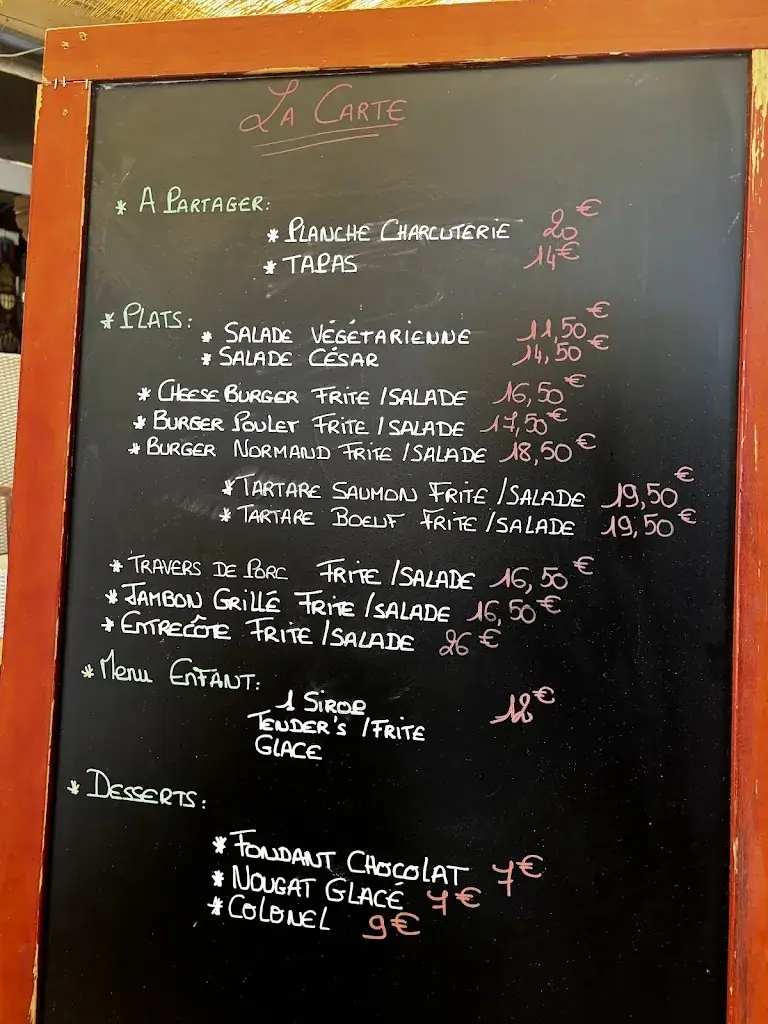 La Carte
* A Partager:
* Planche Charcuterie 20€
* Tapas 14€
* Plats:
* Salade Végétarienne 11,50€
* Salade César 14,50€
* Cheese Burger Frite / Salade 16,50€
* Burger Poulet Frite / Salade 17,50€
* Burger Normand Frite / Salade 18,50€
* Tartare Saumon Frite / Salade 19,50€
* Tartare Boeuf Frite / Salade 19,50€
* Travers de Porc Frite / Salade 16,50€
* Jambon Grillé Frite / Salade 16,50€
* Entrecôte Frite / Salade 26€
* Menu Enfant:
1 Sirop
Tender's / Frite
Glace
* Desserts:
* Fondant Chocolat 7€
* Nougat Glacé 7€
* Colonel 9€